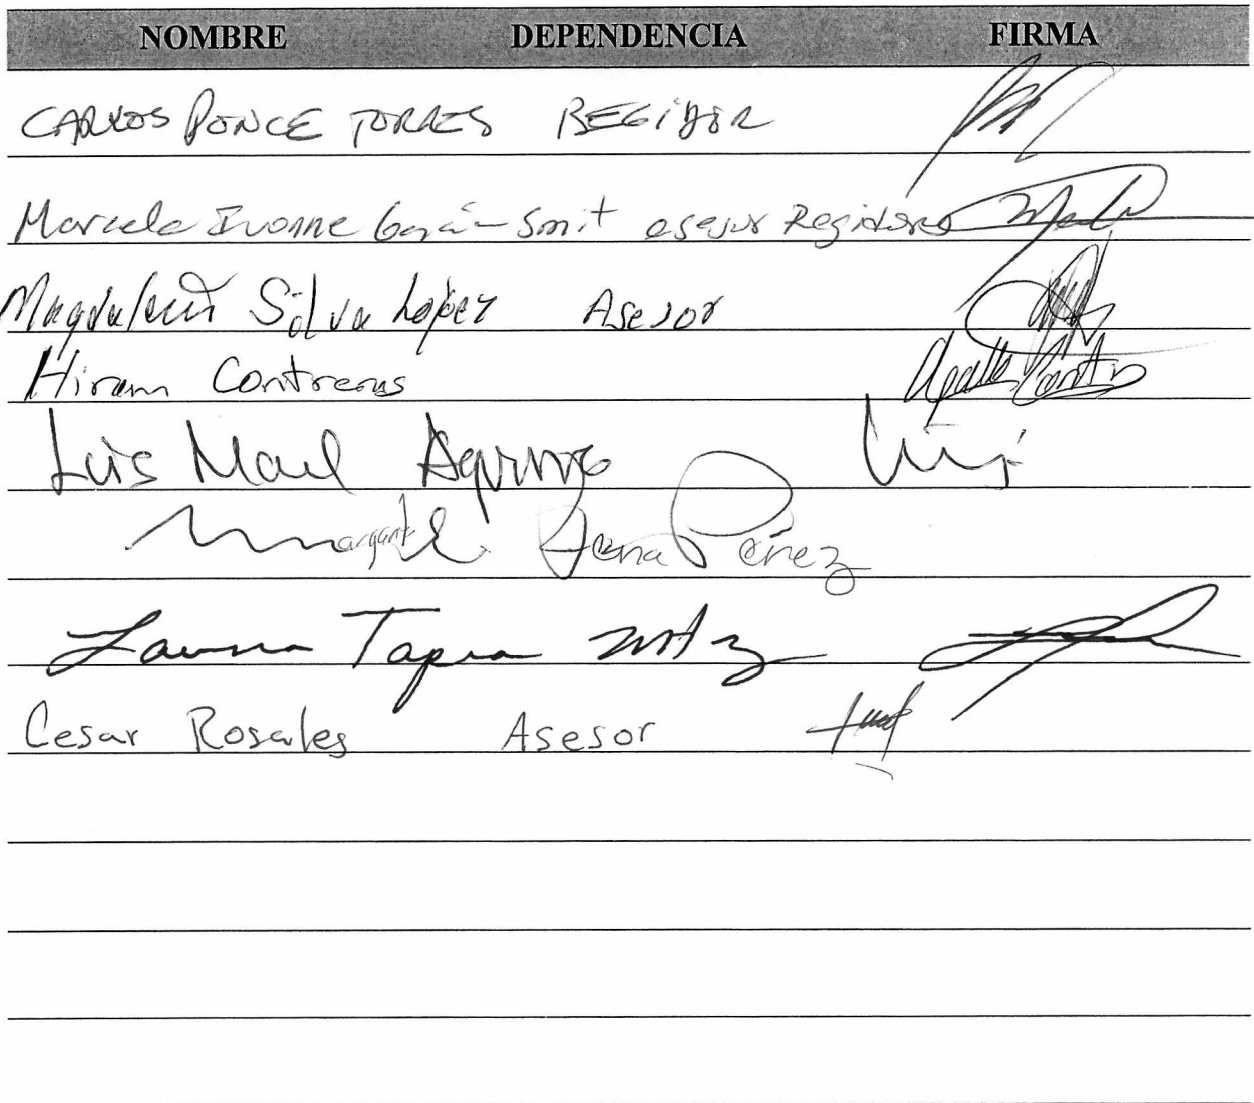 NOMBRE DEPENDENCIA FIRMA
CARLOS PONCE TORRES REGIDOR
Marcela Ivonne asesor Regidores
Magdalena Silva López Asesor
Hiram Contreras
Luis Mael
Margarita Pérez
Laura Tapia Mtz
Cesar Rosales Asesor